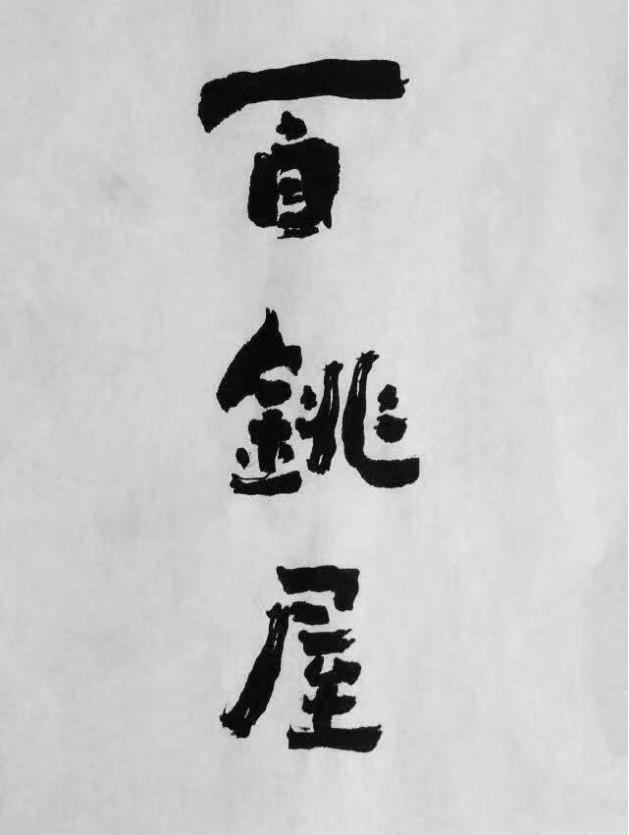 百銚屋